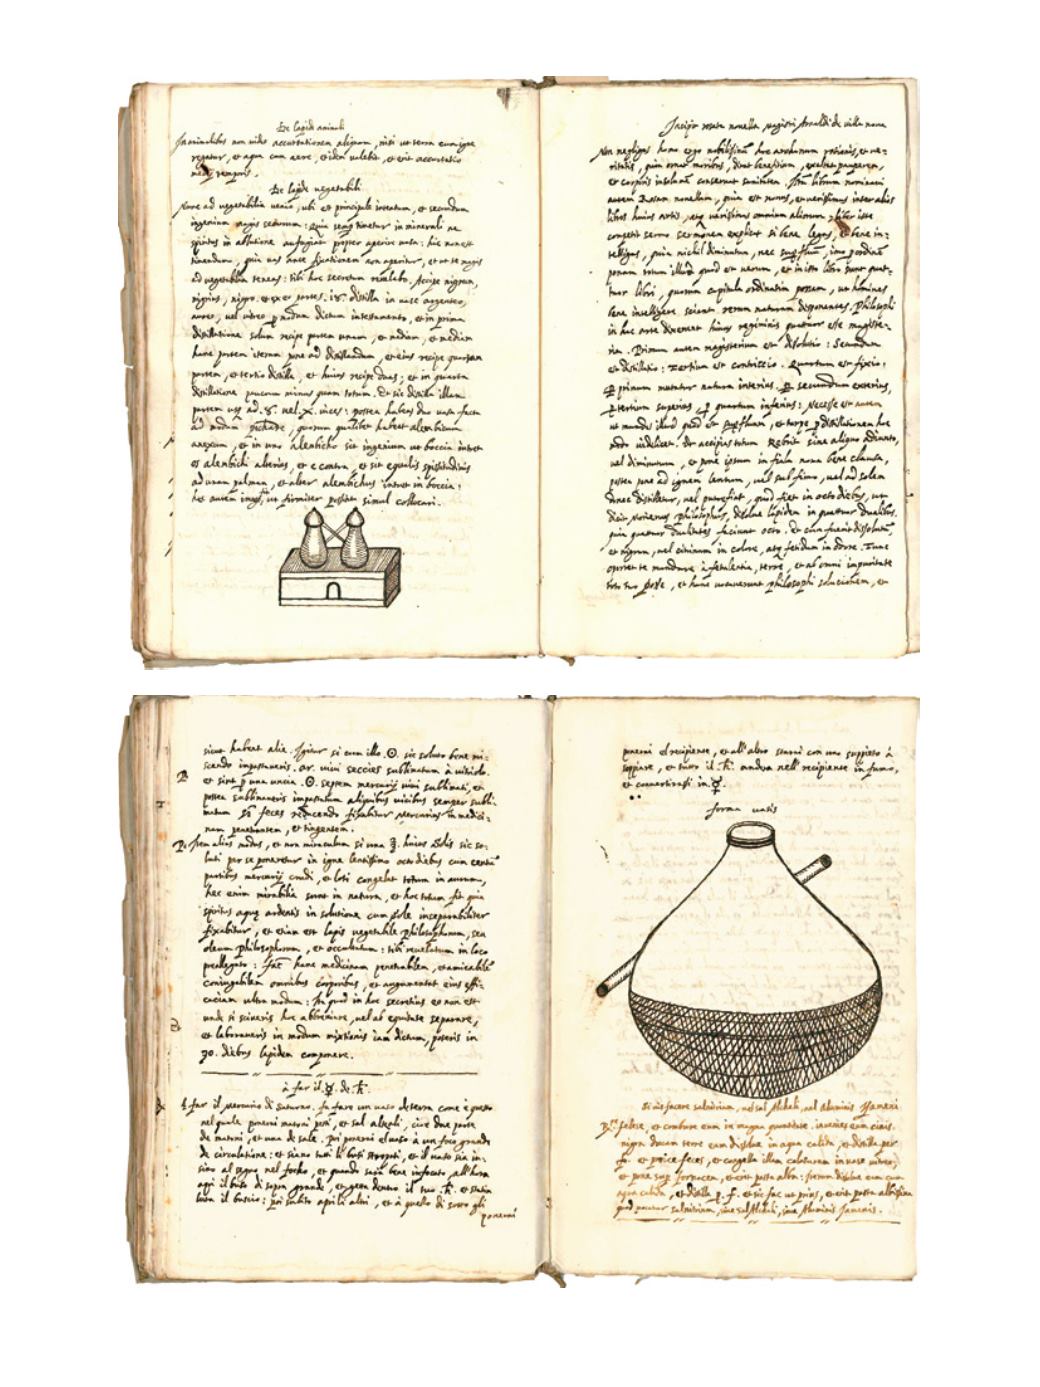 De lapide animali
In animalibus non uides accurtationem aliquam, nisi ut terra cum igne
regatur, et aqua cum aere, et idem ualebit, et erit accurtatio
temporis.
De lapide uegetabili
Nunc ad uegetabilia uenio, ubi est principale intentum, et secundum
ingenium magis securum: quia tinetur in minerali ne
spiritus in solutione aufugiat propter aperire uasa: hic non est
timendum, quia uas ante fixationem non aperitur, et ut te magis
ad uegetabilia teneas: tibi hoc secretum reuelabo. Accipe nigrum,
nigrius, nigro, et ex eo partes .18. distilla in uase argenteo,
aureo, uel uitreo modum dictum in testamento, et in prima
distillatione solum recipe partem unam, et mediam, et mediam
hanc partem iterum pone ad distillandum, et eius recipe quartam
partem, et tertio distilla, et huius recipe duas; et in quarta
distillatione paucum minus quam totum. Et sic distilla illam
partem usq ad .8. uel .X. uices: postea habeas duo uasa facta
ad modum , quorum quilibet habeat alembicum
anexum, et in uno alembicho sit ingenium ut boccia intret
os alembichi alterius, et e contra, et sit equalis spissitudinis
ad unam palmam, et alter alembichus intret in boccia:
hoc autem ut firmiter possint simul collocari.
Incipit rosa nouella magistri Arnaldi de uilla noua
Non negligas homo ergo nobilissimum hoc archanum rationis, et ue-
ritatis, quia ornat moribus, ditat , exaltat pauperem,
et corporis insolum conseruat sanitatem. librum nominaui
autem Rosam nouellam, quia est nouus, et uerissimus inter alios
libros huius artis, atq uerissimus omnium aliorum, liber iste
sermo sermonem explicat si bene legas, et bene in-
telligas, quia nichil diminutum, nec , imo ordine
ponam totum illud quod est uerum, et in isto libro sunt quat-
tuor libri, quorum capitula ordinatim ponam, ut homines
bene intelligere sciant rerum naturam disponentes. Philosophi
in hac arte dixerunt huius regiminis quatuor esse magiste-
ria. Primum autem magisterium est disolutio: Secundum
est distillatio: Tertium est contritio. Quartum est fixio:
primum mutatur natura interius. secundum exterius,
tertium superius, quartum inferius: Necesse est autem
ut mundes illud quod est , et turpe distillationem hoc
modo uidelicet. Accipias totum Rebis sine aliquo adiuncto,
uel diminutum, et pone ipsum in fiala noua bene clausa,
postea pone ad ignem lentum, uel sub fimo, uel ad solem
donec distilletur, uel putrefiat, quod fiet in octo diebus, ut
dicit Morienus philosophus, disolue lapidem in quatuor dualibus.
quia quatuor dualitates faciunt octo. Et cum fuerit dissolutum,
et nigrum, uel citrinum in colore, atq fetidum in odore. Tunc
oportet te mundare a fetulentia, terre, et ab omni impuritate
toto tuo posse, et hanc uocauerunt philosophi solutionem, et
sicut habent alie. Igitur si cum illo .☉. sic soluto bene mi-
scendo impastaueris. ar. uiui seccies sublimatum a uitriolo.
et sint una uncia .☉. septem mercurij uiui sublimati, et
postea sublimaueris impastatum aliquibus uicibus semper subli-
matum feces reducendo fixabitur Mercurius in medici-
nam penetrantem, et tingentem.
Item alius modus, et non miraculum si una huius Solis sic so-
luti per se poneretur in igne lentissimo octo diebus cum centum
partibus mercurij crudi, et toti congelat totum in aurum,
hec enim mirabilia sunt in natura, et hoc totum fit quia
spiritus aque ardentis in solutione cum sole inseparabiliter
fixabitur, et etiam est lapis uegetabile philosophorum, seu
oleum philosophorum, et occultatum: tibi reuelatum in loco
preallegato: hanc medicinam penetrabilem, et amicabile
coniugabilem omnibus corporibus, et augmentat eius effi-
caciam ultra modum: In quod in hoc secretius eo non est
unde si scieris hoc abreuiare, uel ab equitate separare,
et laboraueris in modum mixtionis iam dictum, poteris in
30. diebus lapidem componere.
à far il ☿. de .♄.
A far il Mercurio di saturno. fa fare un uaso de terra come è questo
nel quale ponerai matoni pesti, et sal alcali, cioe due parte
de matoni, et una de sale. Poi ponerai el uaso à un foco grande
de circulatione: et siano tutti li busi stropati, et il uaso sia in-
sino al segno nel forno, et quando sarà bene infocato, all'hora
apri il buso di sopra grande, et geta dentro il tuo .♄. et statim
luta il buscio: poi subito apri li altri, et à questo di sotto gli
ponerai
ponerai el recipiente, et all'altro starai con uno suppieto à
soppiare, et tutto il .♄. andera nell'recipiente in fumo,
et conuertirassi in .☿.
forma uasis
Si uis facere salnitrium, uel sal Alchali, uel Aluminis Jameni.
 et combure eum in magna quantitate. inuenies eum cinis
nigra docum terre eum disolue in aqua calida, et distilla per
. et proice feces, et congella illam calaturam in uase uitreo,
et pone fornacem, et erit pasta alba: iterum disolue eum cum
aqua calida, et distilla . f. et sic fac ut prius, et erit pasta albissima
quod uocatur salnitrium, siue sal Alchali, siue Aluminis Jamenis.